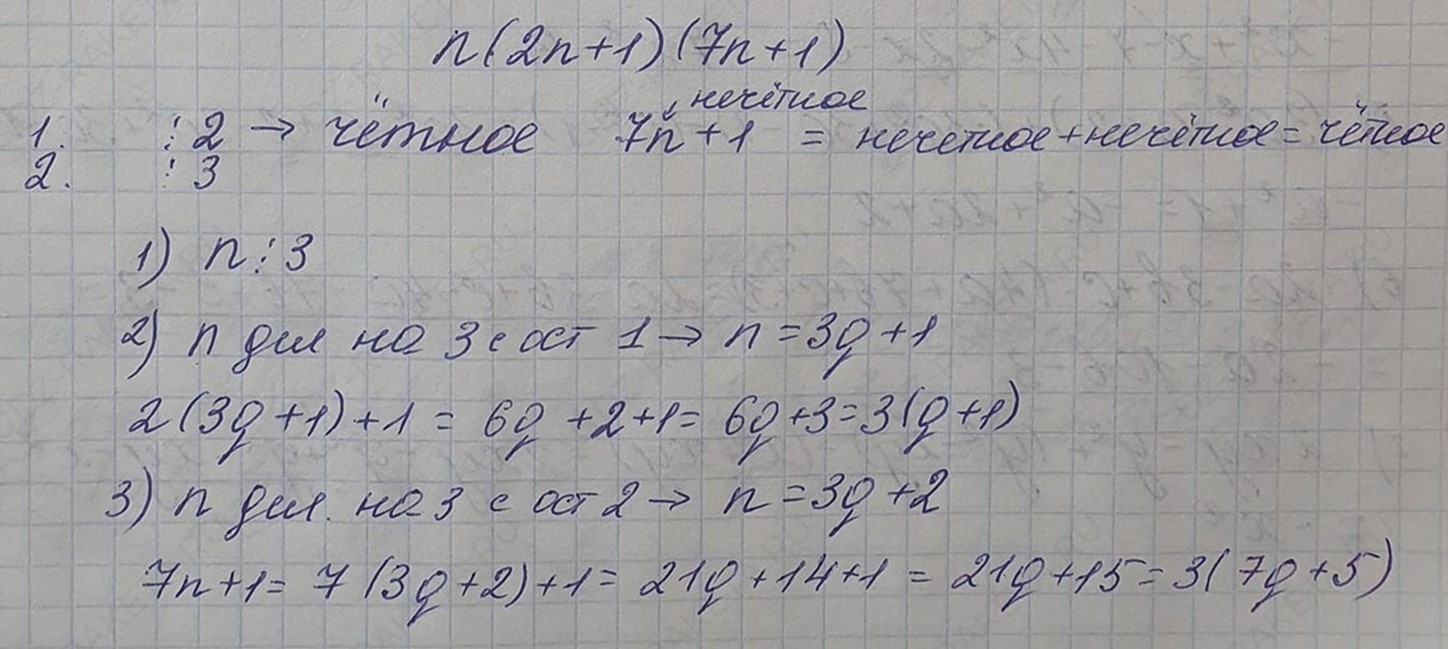 n(2n+1)(7n+1)
1. ⋮2 → чётное 7n+1 = нечётное+нечётное=чётное
нечётное
2. ⋮3
1) n⋮3
2) n дел на 3 с ост 1 → n=3q+1
2(3q+1)+1= 6q+2+1= 6q+3=3(q+1)
3) n дел. на 3 с ост 2 → n=3q+2
7n+1= 7(3q+2)+1= 21q+14+1 = 21q+15=3(7q+5)